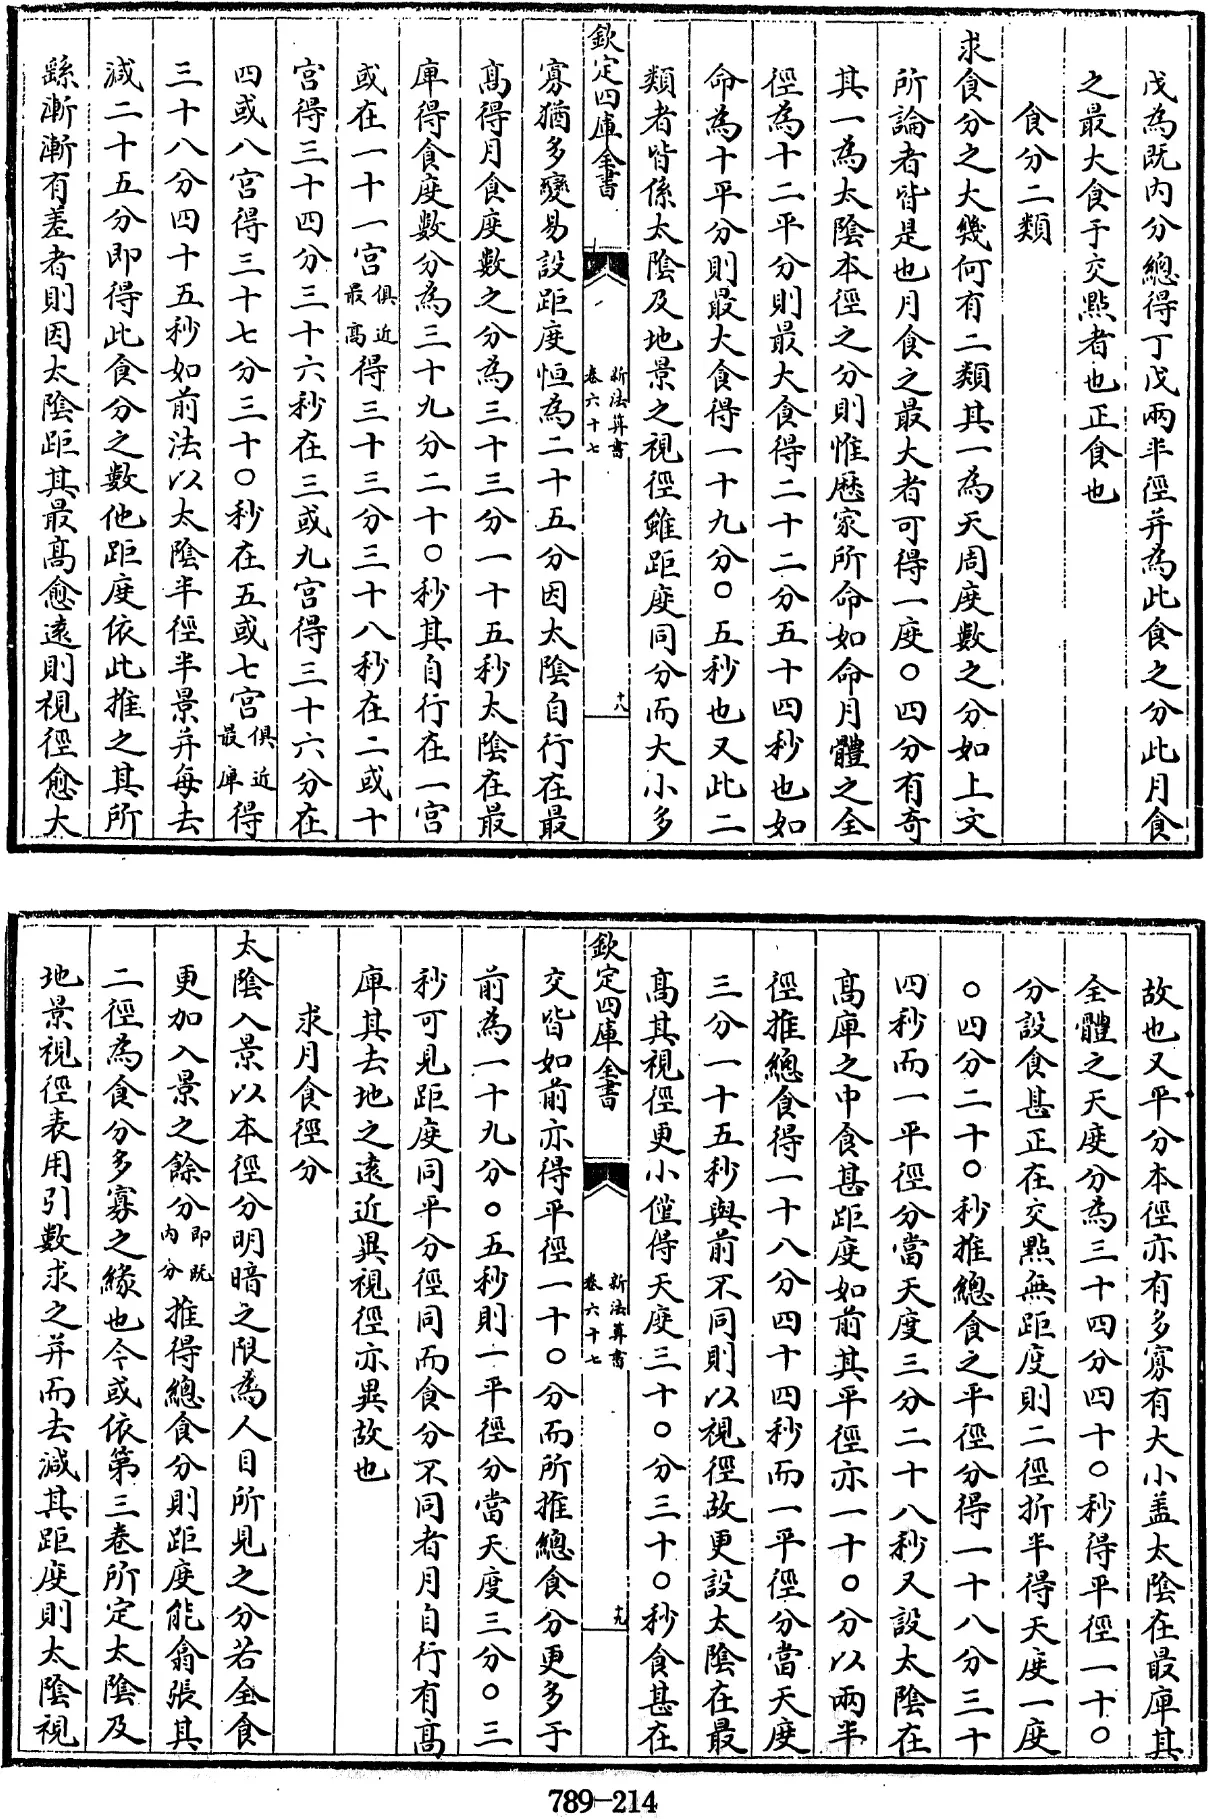 戊為既内分總得丁戊兩半徑并為此食之分此月食
之最大食于交㸃者也正食也
食分二類
求食分之大幾何有二類其一為天周度數之分如上文
所論者皆是也月食之最大者可得一度〇四分有奇
其一為太陰本徑之分則惟厯家所命如命月體之全
徑為十二平分則最大食得二十二分五十四秒也如
命為十平分則最大食得一十九分〇五秒也又此二
類者皆係太陰及地景之視徑雖距度同分而大小多
欽定四庫全書
新法算書
卷六十七
十八
寡猶多變易設距度恒為二十五分因太陰自行在最
髙得月食度數之分為三十三分一十五秒太陰在最
庳得食度數分為三十九分二十〇秒其自行在一宫
或在一十一宫俱近最髙得三十三分三十八秒在二或十
宫得三十四分三十六秒在三或九宫得三十六分在
四或八宫得三十七分三十〇秒在五或七宫俱近最庳得
三十八分四十五秒如前法以太陰半徑半景并每去
減二十五分即得此食分之數他距度依此推之其所
繇漸漸有差者則因太陰距其最髙愈逺則視徑愈大
故也又平分本徑亦有多寡有大小盖太陰在最庳其
全體之天度分為三十四分四十〇秒得平徑一十〇
分設食甚正在交㸃無距度則二徑折半得天度一度
〇四分二十〇秒推總食之平徑分得一十八分三十
四秒而一平徑分當天度三分二十八秒又設太陰在
髙庳之中食甚距度如前其平徑亦一十〇分以兩半
徑推總食得一十八分四十四秒而一平徑分當天度
三分一十五秒與前不同則以視徑故更設太陰在最
髙其視徑更小僅得天度三十〇分三十〇秒食甚在
欽定四庫全書
新法算書
卷六十七
十九
交皆如前亦得平徑一十〇分而所推總食分更多于
前為一十九分〇五秒則一平徑分當天度三分〇三
秒可見距度同平分徑同而食分不同者月自行有髙
庳其去地之逺近異視徑亦異故也
求月食徑分
太陰入景以本徑分明暗之限為人目所見之分若全食
更加入景之餘分即既内分推得總食分則距度能翕張其
二徑為食分多寡之緣也今或依第三卷所定太陰及
地景視徑表用引數求之并而去減其距度則太陰視
789-214